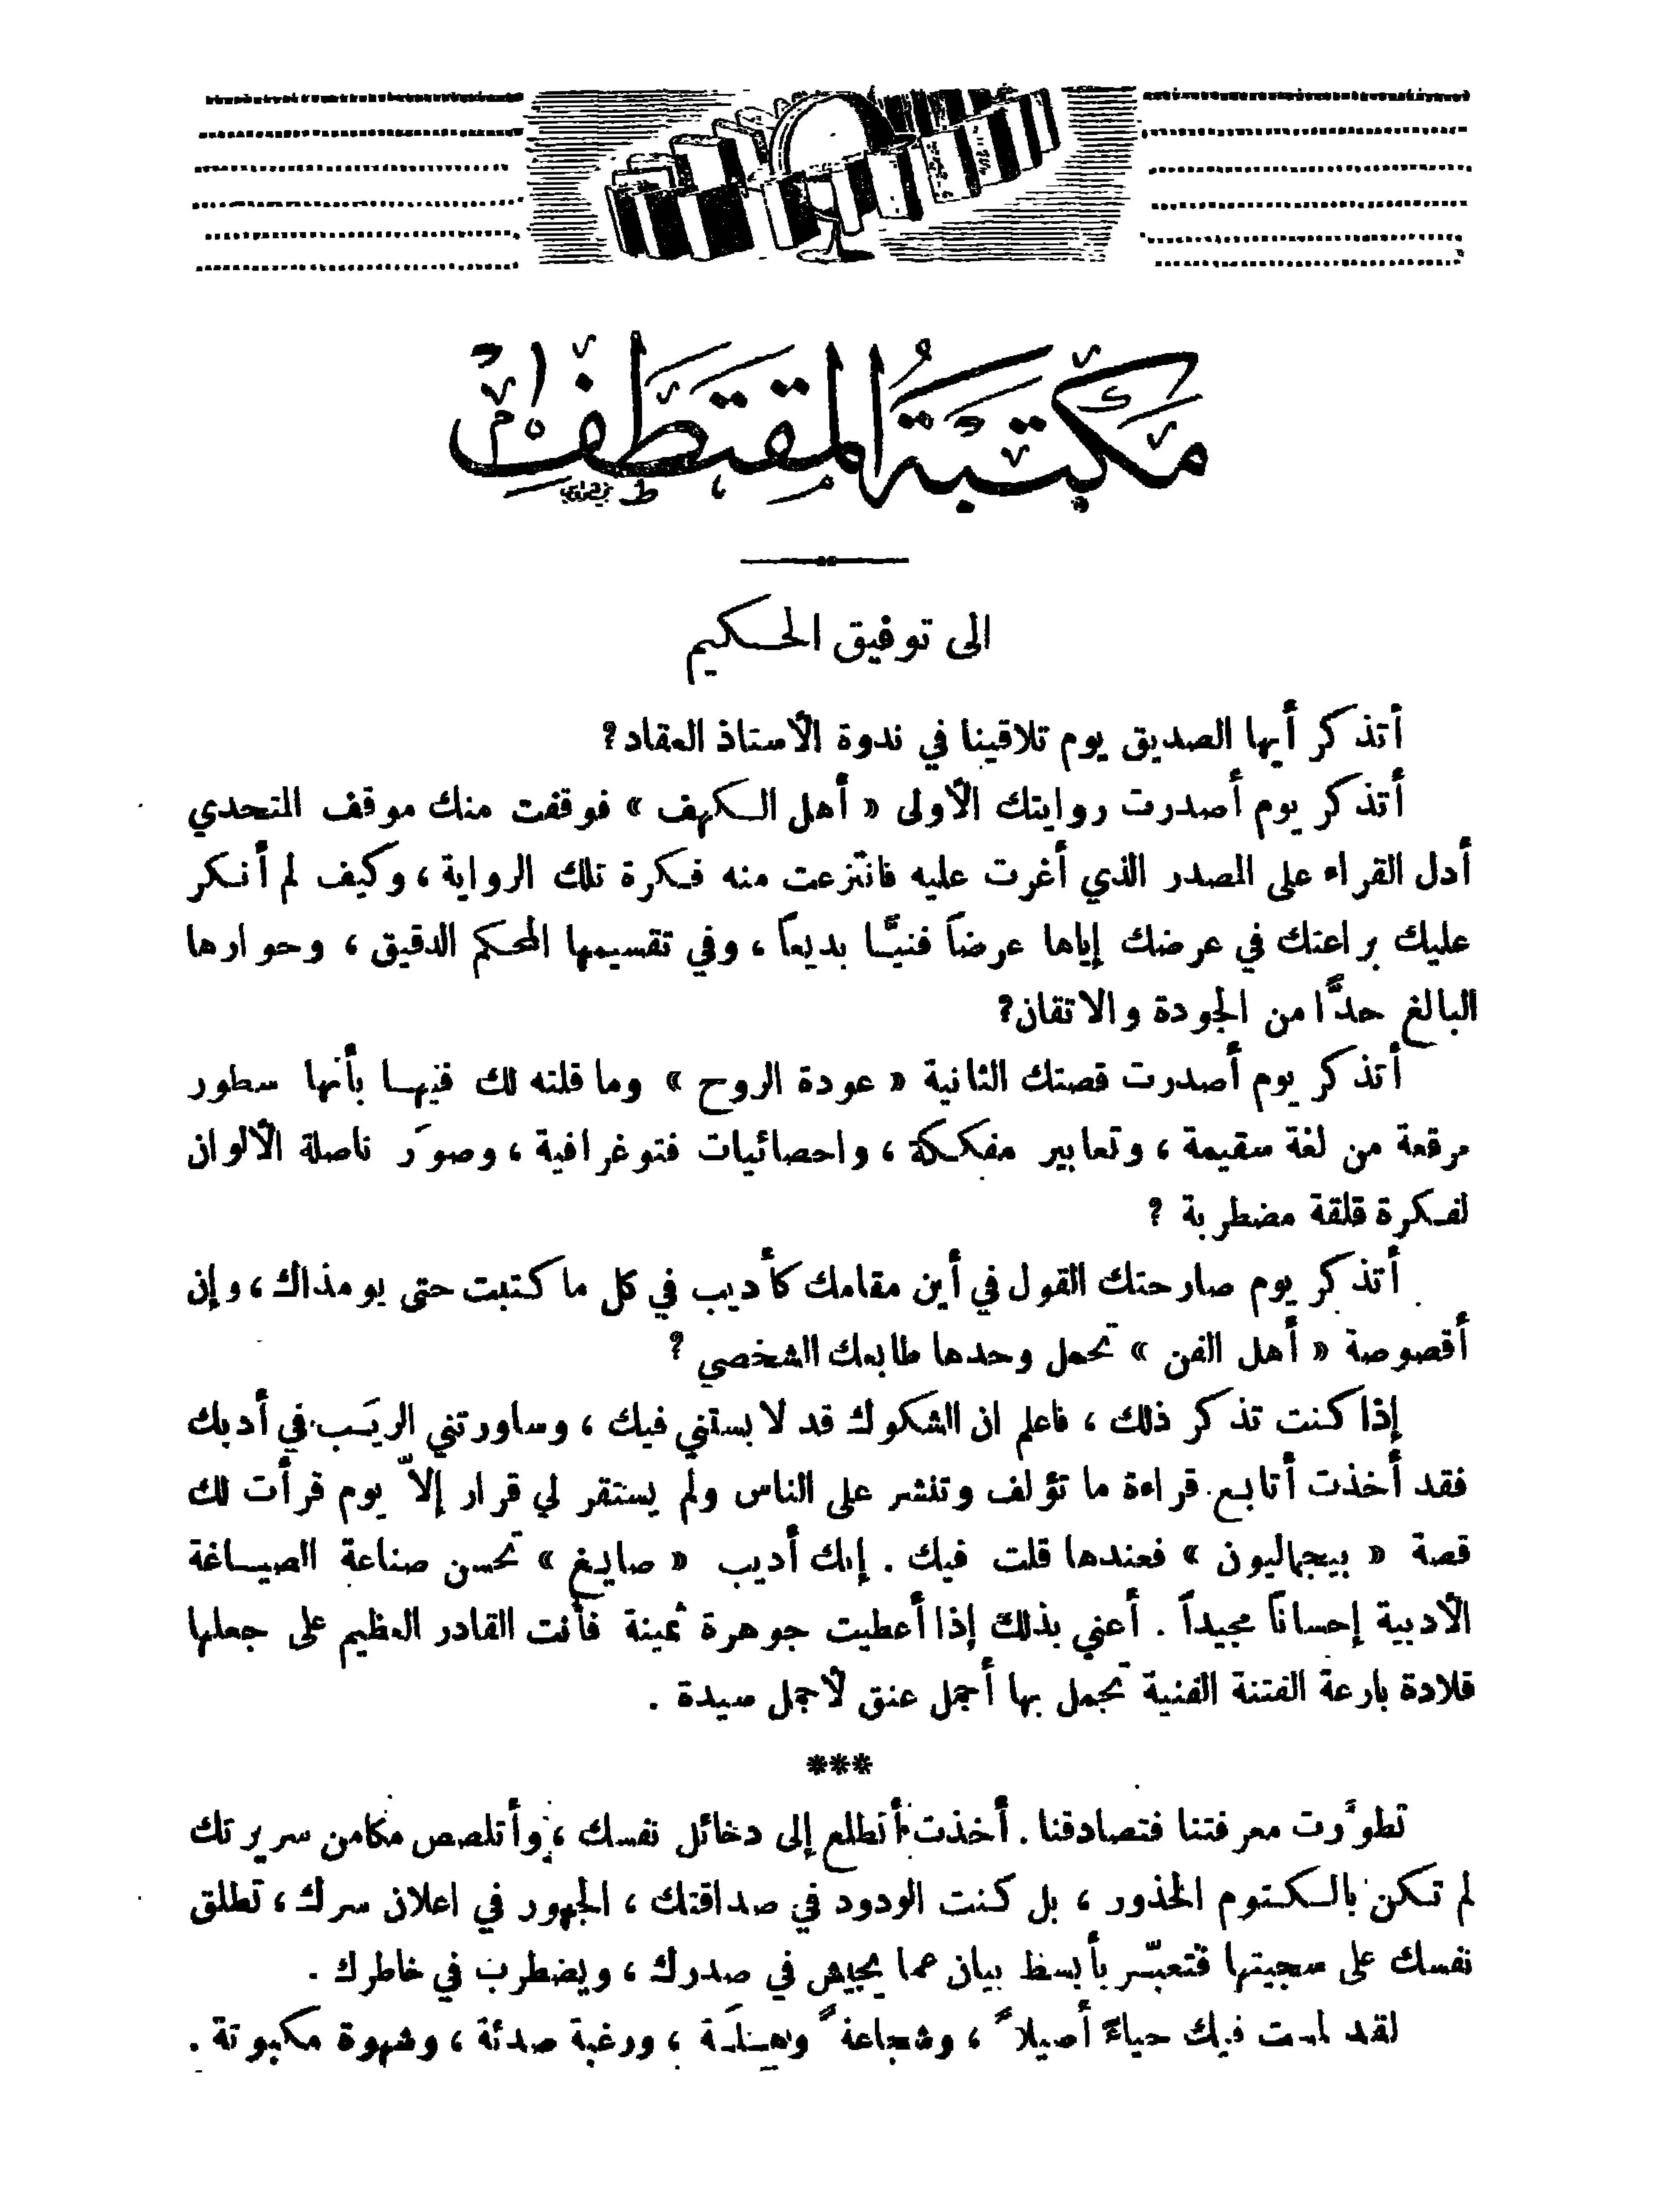 مكتبة المقتطف
الى توفيق الحكيم
أتذكر أيها الصديق يوم تلاقينا في ندوة الأستاذ العقاد؟
أتذكر يوم أصدرت روايتك الأولى « أهل الكهف » فوقفت منك موقف المتحدي
أدل القراء على المصدر الذي أغرت عليه فانتزعت منه فكرة تلك الرواية ، وكيف لم أنكر
عليك براعتك في عرضك إياها عرضاً فنيًّا بديعاً ، وفي تقسيمها المحكم الدقيق ، وحوارها
البالغ حدًّا من الجودة والاتقان؟
أتذكر يوم أصدرت قصتك الثانية « عودة الروح » وما قلته لك فيها بأنها سطور
مرقعة من لغة سقيمة ، وتعابير مفككة ، واحصائيات فتوغرافية ، وصوَر ناصلة الألوان
لفكرة قلقة مضطربة ؟
أتذكر يوم صارحتك القول في أين مقامك كأديب في كل ما كتبت حتى يومذاك ، وإن
أقصوصة « أهل الفن » تحمل وحدها طابعك الشخصي ؟
إذا كنت تذكر ذلك ، فاعلم ان الشكوك قد لابستني فيك ، وساورتني الريَب في أدبك
فقد أخذت أتابع قراءة ما تؤلف وتنشر على الناس ولم يستقر لي قرار إلاّ يوم قرأت لك
قصة « بيجماليون » فعندها قلت فيك . إنك أديب « صايغ » تحسن صناعة الصياغة
الأدبية إحساناً مجيداً . أعني بذلك إذا أعطيت جوهرة ثمينة فأنت القادر العظيم على جعلها
قلادة بارعة الفتنة الفنية تجمل بها أجمل عنق لأجمل سيدة .
***
تطوَّرت معرفتنا فتصادقنا . أخذت أتطلع إلى دخائل نفسك ، وأتلصص مكامن سريرتك
لم تكن بالكتوم الحذور ، بل كنت الودود في صداقتك ، الجهور في اعلان سرك ، تطلق
نفسك على سجيتها فتعبّر بأبسط بيان عما يجيش في صدرك ، ويضطرب في خاطرك .
لقد لمست فيك حياءً أصيلاً ، وشجاعةً ، ورغبة صدئة ، وشهوة مكبوتة .